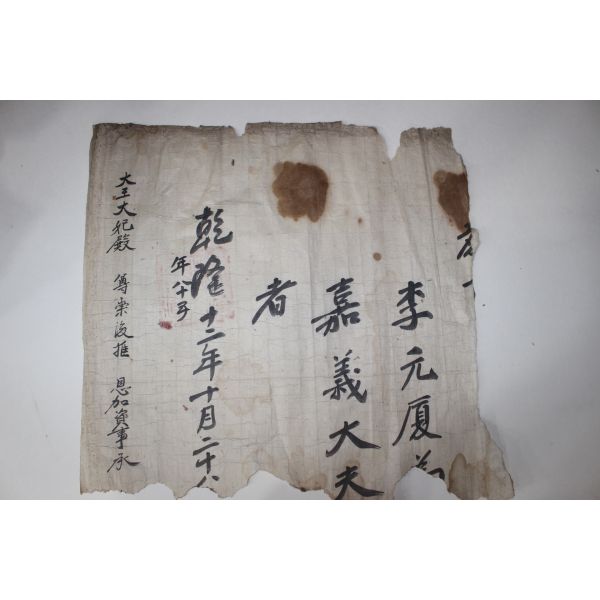 李元厦為
嘉義大夫
者
乾隆十二年十月二十八
年八十五
大王大妃殿 尊崇後推 恩加資事承